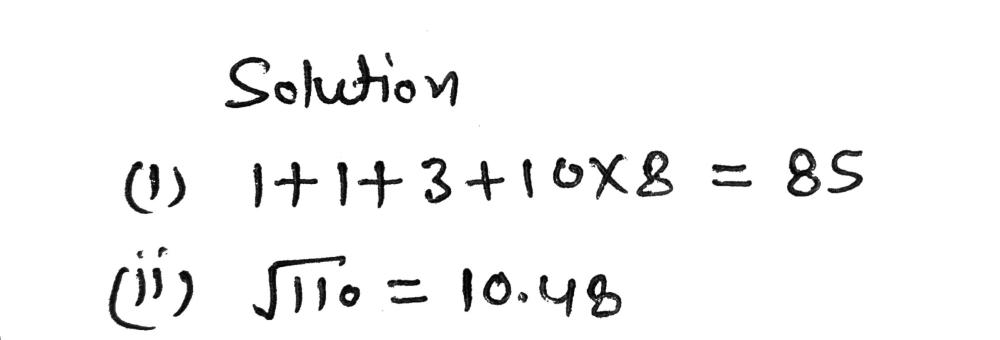 Solution
(i) 1+1+3+10×8 = 85
(ii) √110 = 10.48